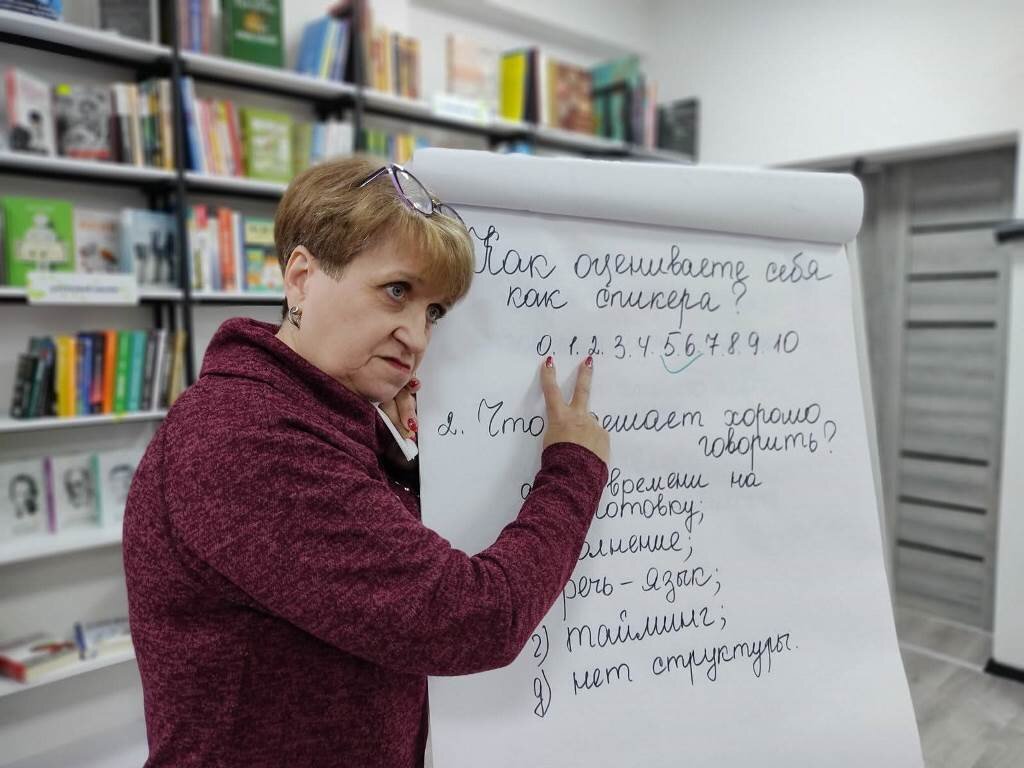 Как оцениваете себя
как спикера?
0. 1. 2. 3. 4. 5. 6. 7. 8. 9. 10
2. Что ешает хорошо
говорить?
времени на
отовку;
лнение;
речь - язык;
г) тайминг;
д) нет структуры.